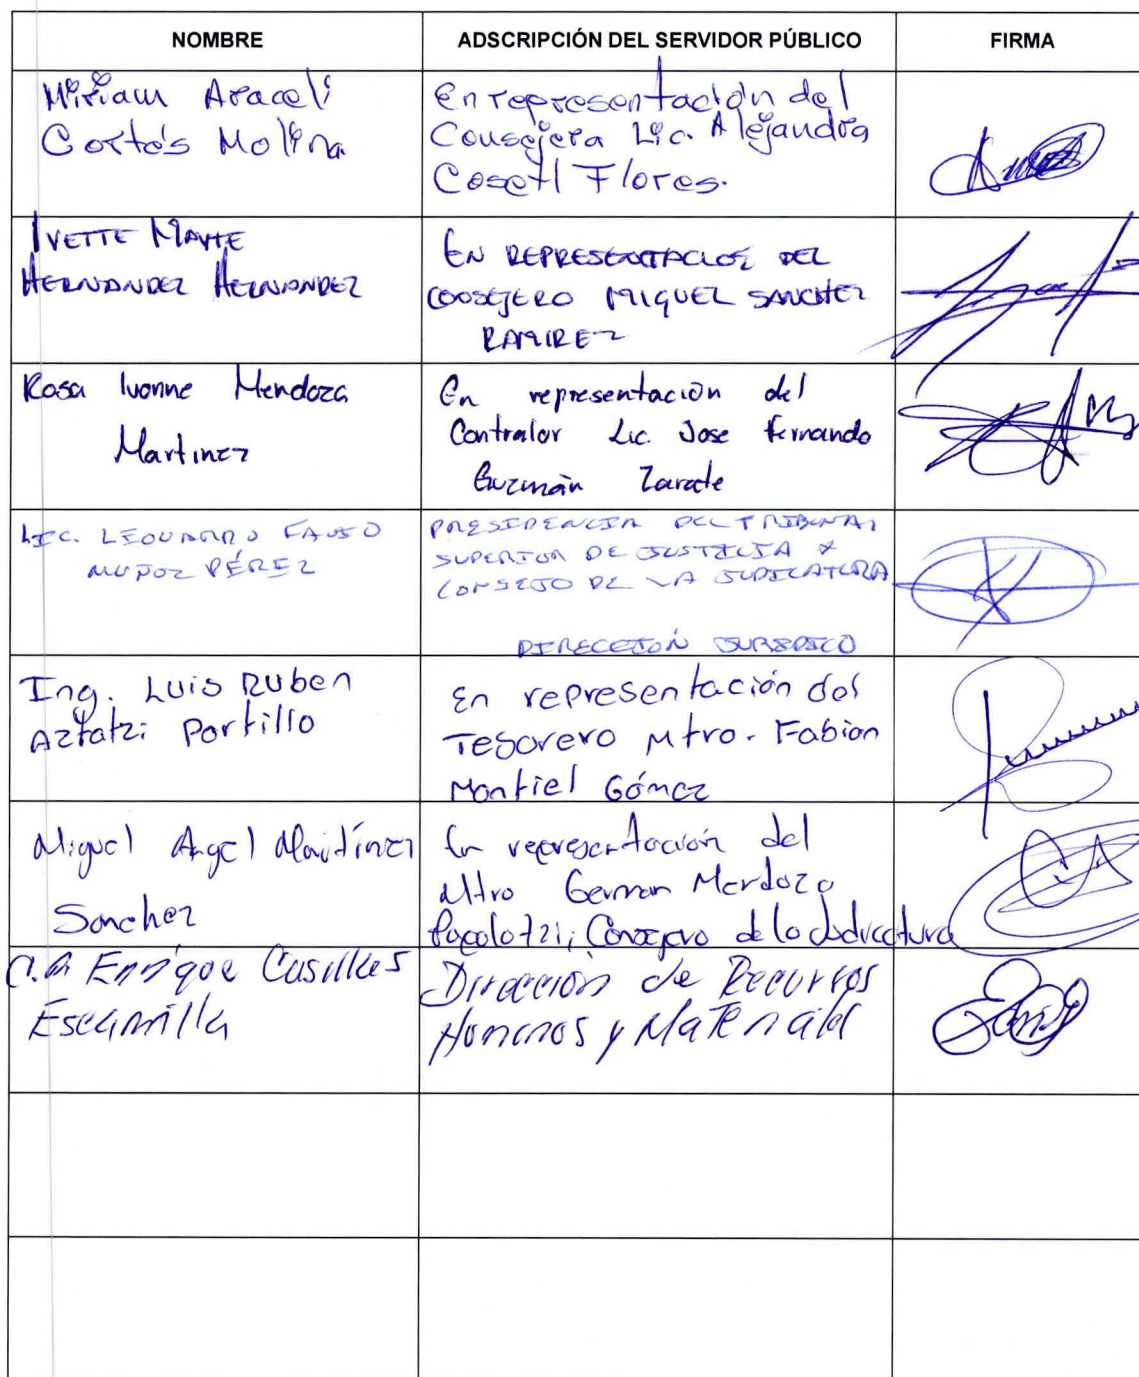 NOMBRE ADSCRIPCIÓN DEL SERVIDOR PÚBLICO FIRMA
Miriam Araceli
Cortés Molina
En representación del
Consejera Lic. Alejandra
Cosetl Flores.
IVETTE MAYTE
HERNANDEZ HERNANDEZ
EN REPRESENTACIOS DEL
CONSEJERO MIGUEL SANCHEZ
RAMIREZ
Rosa Ivonne Mendoza
Martinez
En representación del
Contralor Lic. Jose Fernando
Guzmán Zarate
LIC. LEONARDO FAUSO
MUÑOZ PÉREZ
PRESIDENCIA DEL TRIBUNAL
SUPERIOR DE JUSTICIA Y
CONSEJO DE LA JUDICATURA
DIRECCIÓN JURIDICO
Ing. Luis Ruben
Aztatzi Portillo
En representación del
Tesorero Mtro. Fabian
Montiel Gómez
Miguel Angel Martínez
Sanchez
En representación del
Mtro German Mendoza
Papalotzi, Consejero de la Judicatura
C.P. Enrique Casilles
Escamilla
Dirección de Recursos
Humanos y Materiales